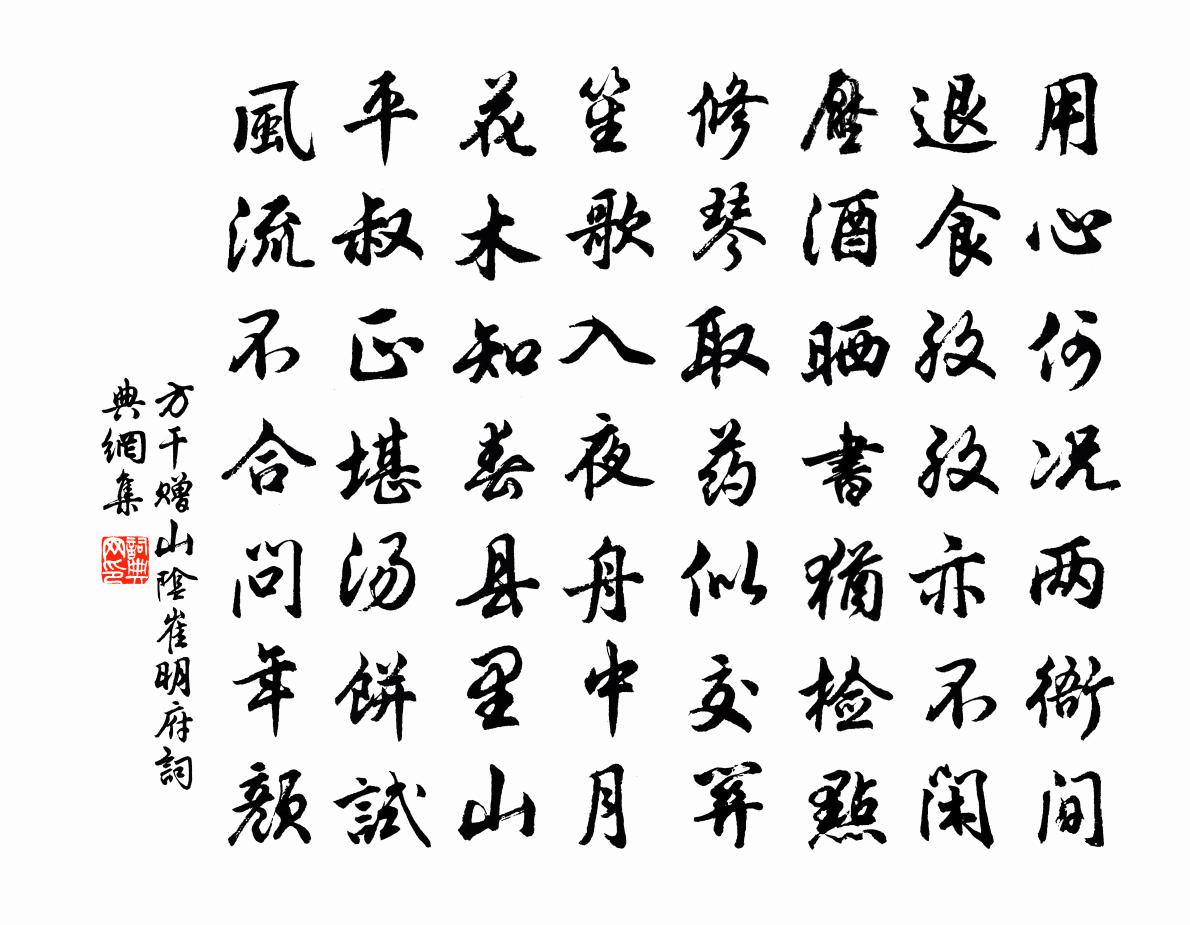 用心何况两衙间
退食孜孜亦不闲
壓酒晒書猶检點
修琴取药似交關
笙歌入夜舟中月
花木知春县里山
平叔正堪汤餅試
風流不合问年颜
方干赠山陰崔明府詞
典網集
詞典网印